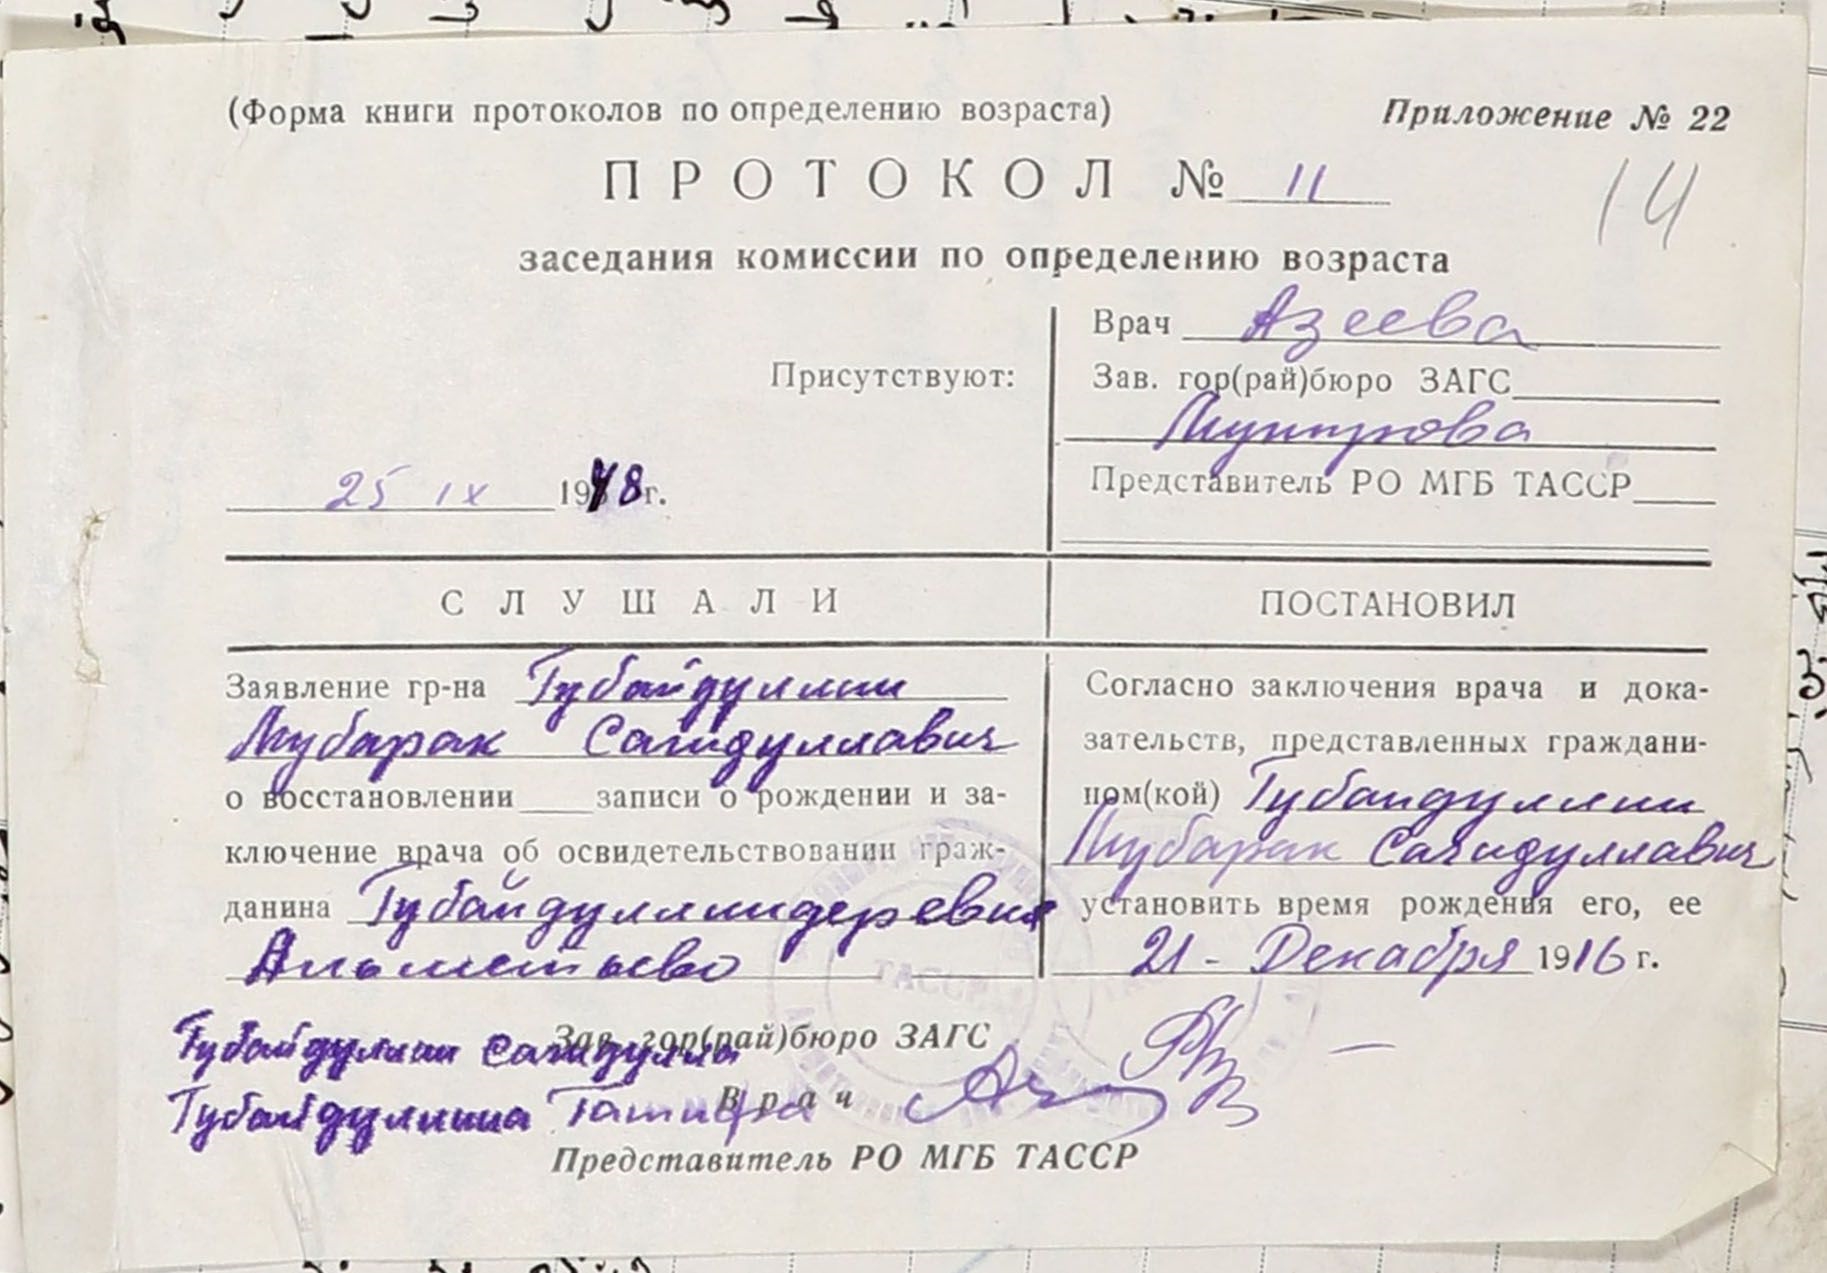 (Форма книги протоколов по определению возраста)
Приложение № 22
ПРОТОКОЛ № 11
14
заседания комиссии по определению возраста
Врач Азеева
Присутствуют:
Зав. гор(рай)бюро ЗАГС
25 IX 1948 г.
Представитель РО МГБ ТАССР
СЛУШАЛИ
Заявление гр-на Губайдуллин
Мубарак Сагидуллавич
о восстановлении записи о рождении и за-
ключение врача об освидетельствовании граж-
данина Губайдуллин деревня
Альметьево
ПОСТАНОВИЛ
Согласно заключения врача и дока-
зательств, представленных граждани-
ном(кой) Губайдуллин
Мубарак Сагидуллавич
установить время рождения его, ее
21 - Декабря 1916 г.
Зав. гор(рай)бюро ЗАГС
Губайдуллин Сагидулла
Врач
Губайдуллина Гатифа
Представитель РО МГБ ТАССР
ТАССР